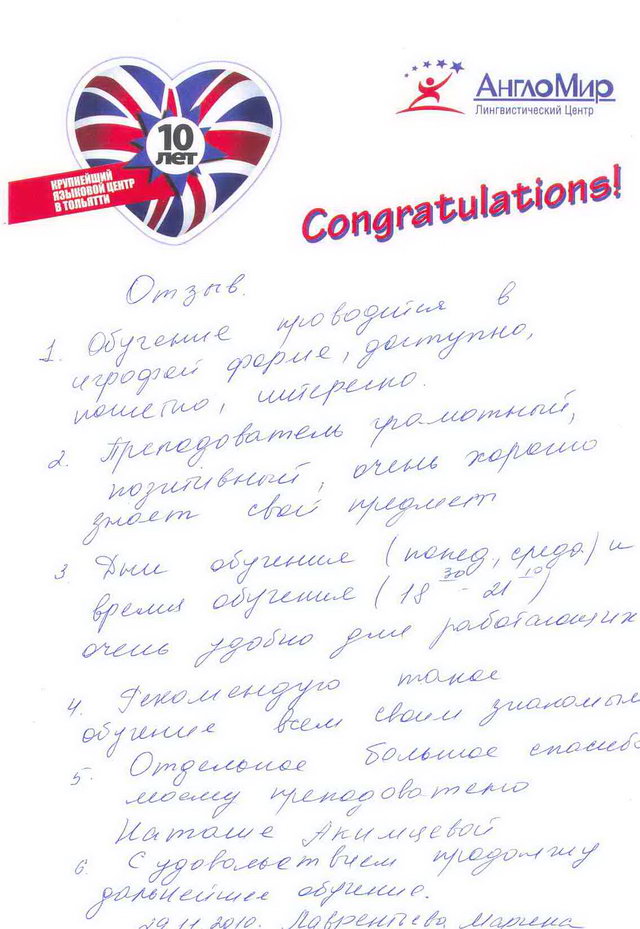 10
ЛЕТ
КРУПНЕЙШИЙ
ЯЗЫКОВОЙ ЦЕНТР
В ТОЛЬЯТТИ
АнглоМир
Лингвистический Центр
Congratulations!
Отзыв.
1. Обучение проводится в
игровой форме, доступно,
понятно, интересно.
2. Преподователь грамотный,
позитивный, очень хорошо
знает свой предмет
3. Дни обучения (понед, среда) и
время обучения (18 30 - 21 10)
очень удобно для работающих
4. Рекомендую такое
обучение всем своим знакомым
5. Отдельное большое спасибо
моему преподователю
Наташе Акимцевой
6. С удовольствием продолжу
дальнейшее обучение.
29.11.2010. Лаврентьева Марина